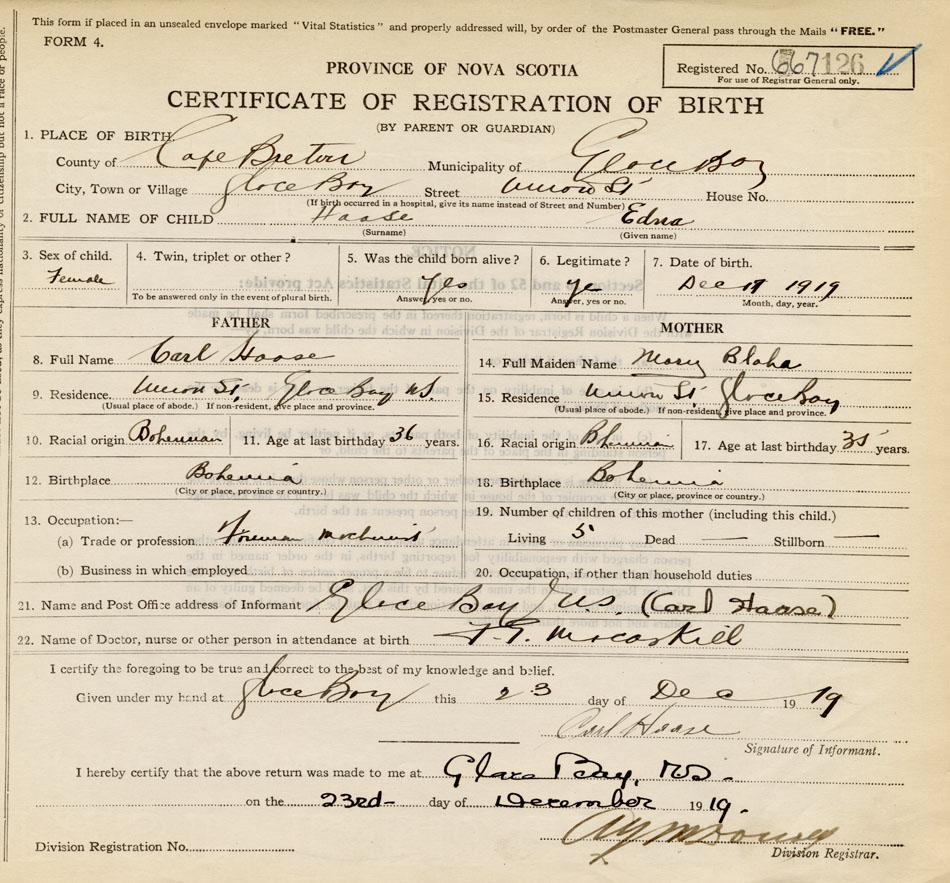 This form if placed in an unsealed envelope marked "Vital Statistics" and properly addressed will, by order of the Postmaster General pass through the Mails "FREE."
FORM 4.
Registered No. 667126
For use of Registrar General only.
PROVINCE OF NOVA SCOTIA
CERTIFICATE OF REGISTRATION OF BIRTH
(BY PARENT OR GUARDIAN)
1. PLACE OF BIRTH
County of Cape Breton Municipality of Glace Bay
City, Town or Village Glace Bay Street Union St House No.
(If birth occurred in a hospital, give its name instead of Street and Number)
2. FULL NAME OF CHILD Haase Edna
(Surname) (Given name)
3. Sex of child. 4. Twin, triplet or other? 5. Was the child born alive? 6. Legitimate? 7. Date of birth.
Female Yes Yes Dec 1919
To be answered only in the event of plural birth. Answer, yes or no. Answer, yes or no. Month, day, year.
FATHER
8. Full Name Carl Haase
9. Residence. Union St. Glace Bay N.S.
(Usual place of abode.) If non-resident, give place and province.
10. Racial origin Bohemian 11. Age at last birthday 36 years.
12. Birthplace Bohemia
(City or place, province or country.)
13. Occupation:—
(a) Trade or profession Foreman machinist
(b) Business in which employed
MOTHER
14. Full Maiden Name Mary Blaha
15. Residence Union St. Glace Bay
(Usual place of abode.) If non-resident, give place and province.
16. Racial origin Bhemian 17. Age at last birthday 35 years.
18. Birthplace Bohemia
(City or place, province or country.)
19. Number of children of this mother (including this child.)
Living 5 Dead — Stillborn —
20. Occupation, if other than household duties
21. Name and Post Office address of Informant Glace Bay N.S. (Carl Haase)
22. Name of Doctor, nurse or other person in attendance at birth McCaskill
I certify the foregoing to be true and correct to the best of my knowledge and belief.
Given under my hand at Glace Bay this 23 day of Dec 19 19
Carl Haase
Signature of Informant.
I hereby certify that the above return was made to me at Glace Bay, NS.
on the 23rd- day of December 19 19.
Division Registration No.
Division Registrar.